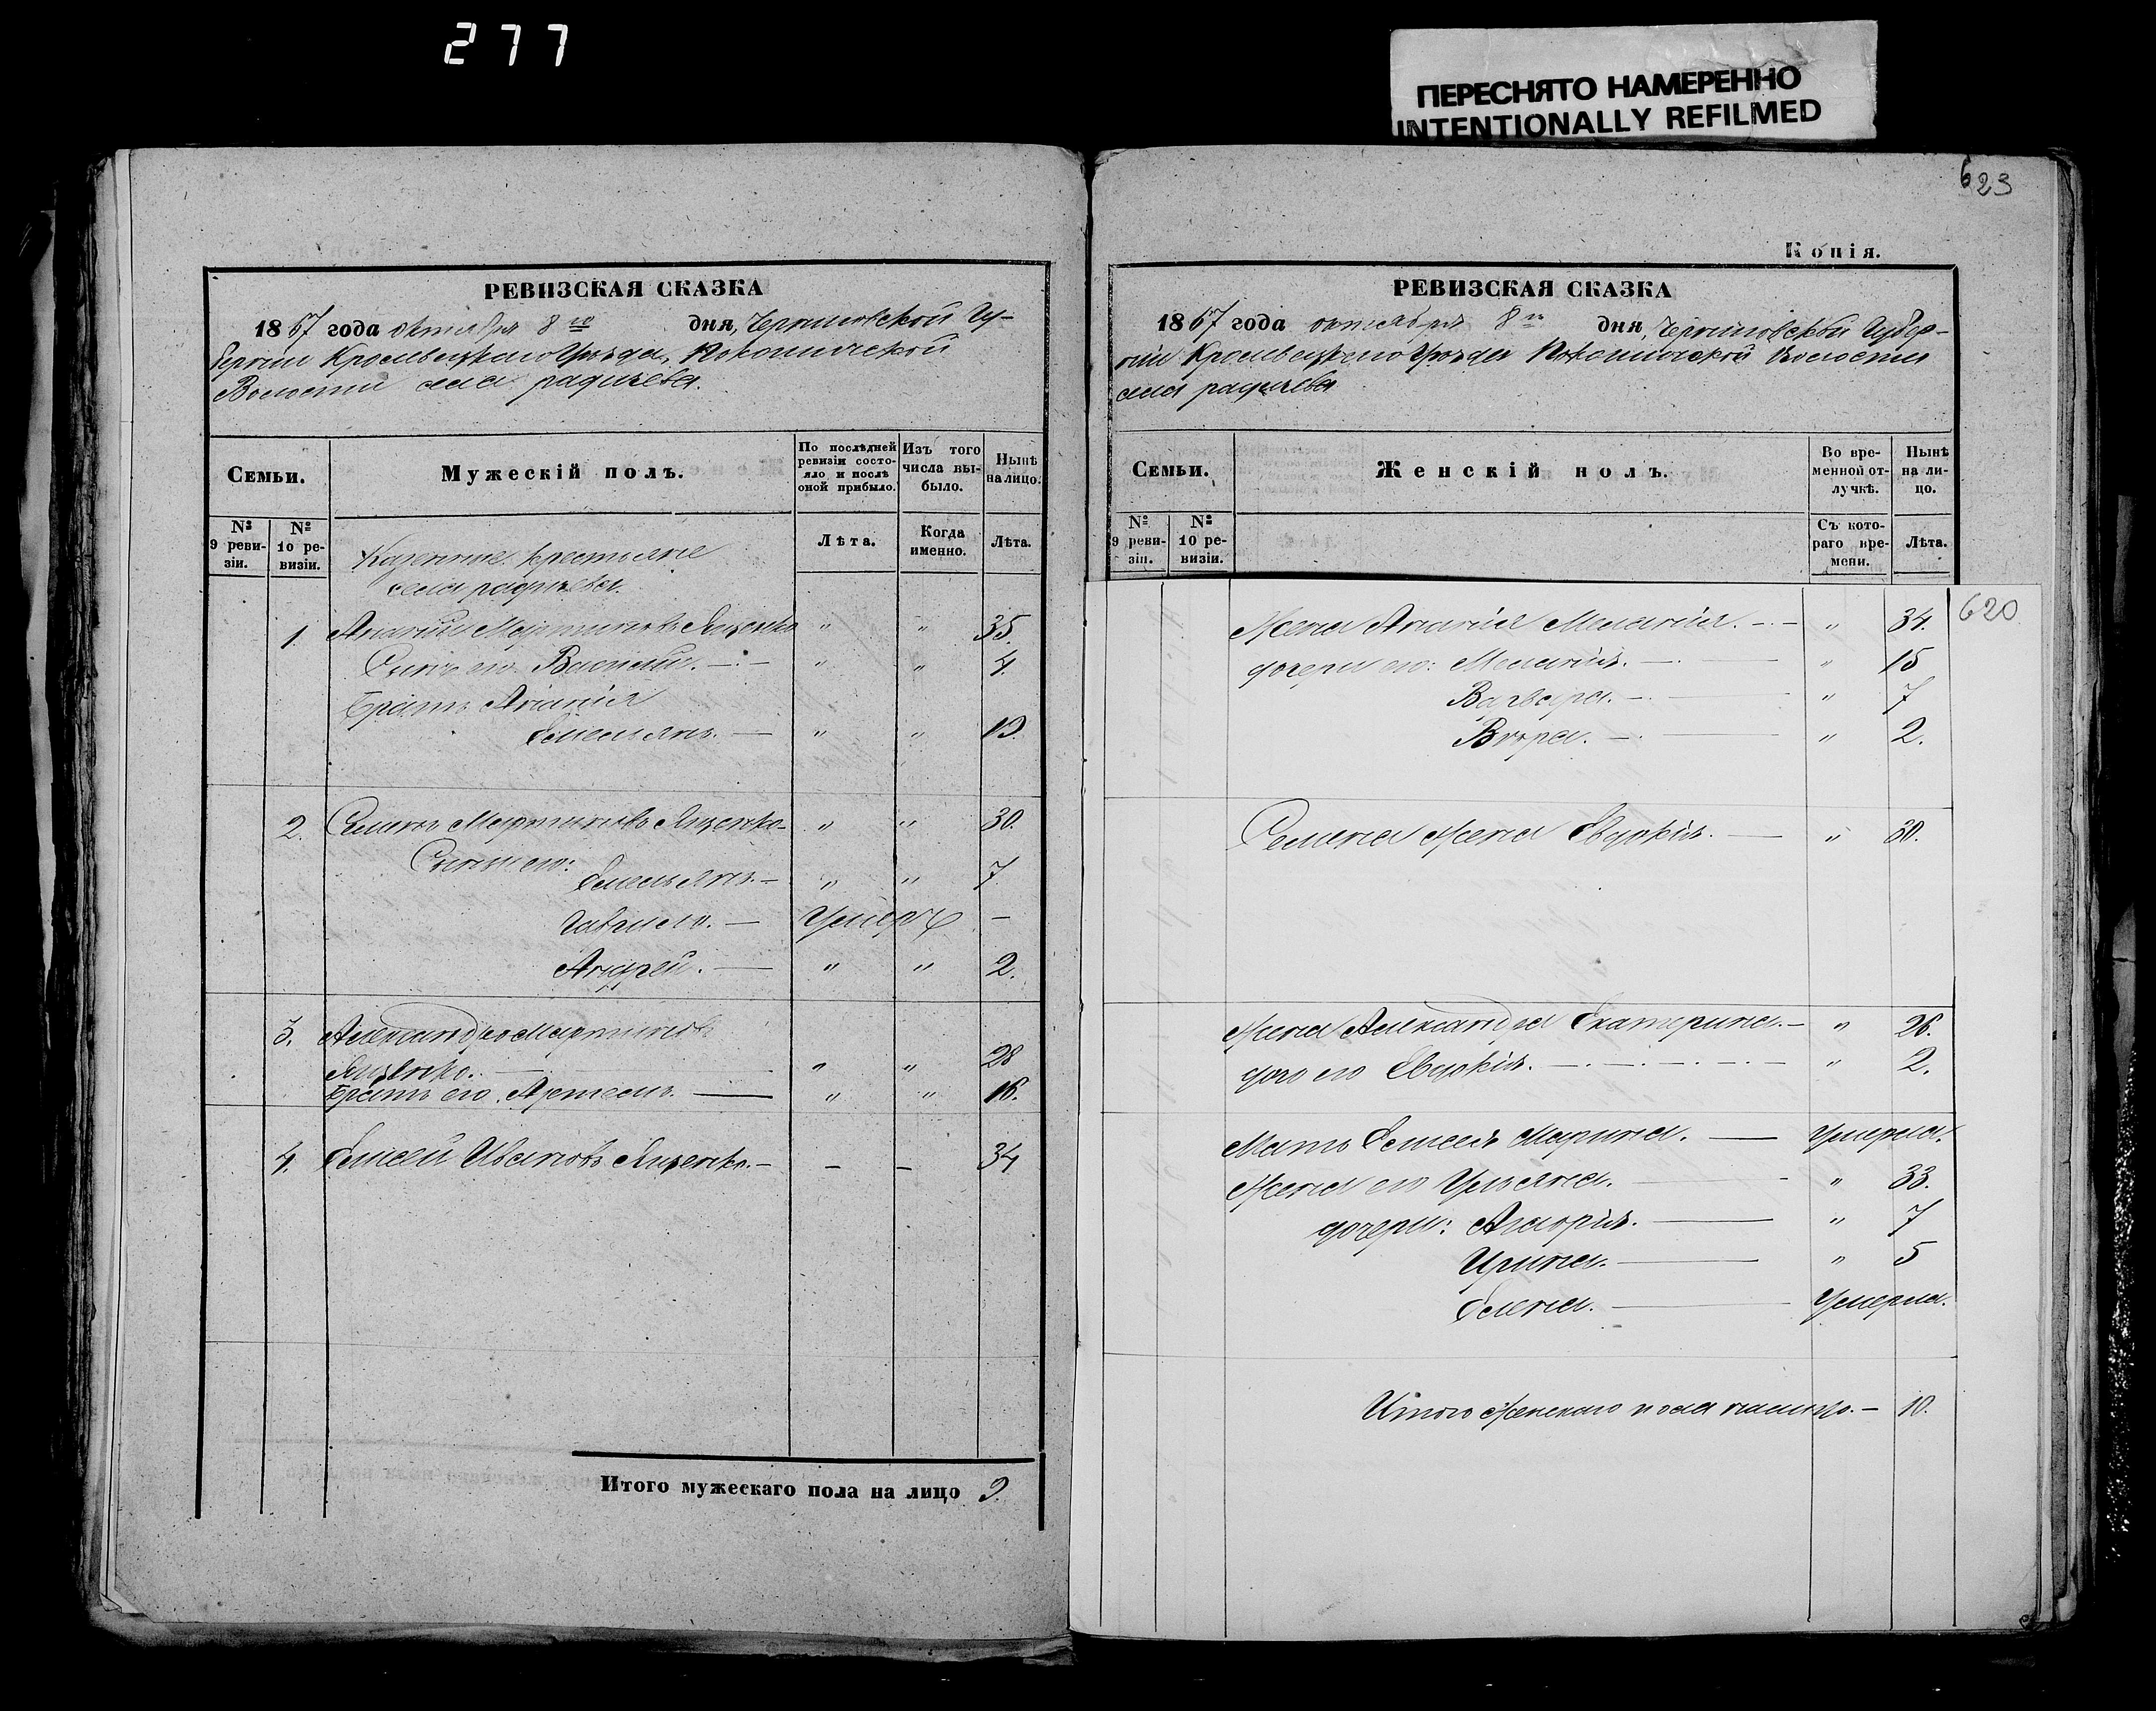 277
ПЕРЕСНЯТО НАМЕРЕННО
INTENTIONALLY REFILMED
РЕВИЗСКАЯ СКАЗКА
1867 года октября 8го дня, Черниговской Гу-
берніи Кролевецкаго Уѣзда, Понорницкой
Волости села радичева.
Семьи.
Мужескій полъ.
По послѣдней ревизіи состояло и послѣ оной прибыло.
Изъ того числа выбыло.
Нынѣ на лицо.
№ 9 ревизіи.
№ 10 ревизіи.
Лѣта.
Когда именно.
Лѣта.
Казенные крестьяне
села радичева.
1. Ананій Мартиновъ Яценко " " 35.
Сынъ его Василій. — " " 4.
Братъ Ананія
Емельянъ. — " " 19.
2. Семенъ Мартиновъ Яценко — " " 30.
Сыны его:
Емельянъ. — " " 7.
Гаврило. — Умеръ —
Андрей. — " " 2.
3. Александро Мартиновъ
Яценко. " " 28
Братъ его Артемъ. — " " 16.
4. Елисей Ивановъ Яценко. — – – 34
Итого мужескаго пола на лицо 9.
623
Копія.
РЕВИЗСКАЯ СКАЗКА
1867 года октября 8го дня, Черниговской Губер-
ніи Кролевецкаго Уѣзда Понорницкой Волости
села радичева
Семьи.
Женскій полъ.
Во временной отлучкѣ.
Нынѣ на лицо.
№ 9 ревизіи.
№ 10 ревизіи.
Съ котораго времени.
Лѣта.
620
Жена Ананія Меланія. — " 34.
дочери его: Меланія. — " 15
Варвара. — " 7
Вѣра. — " 2.
Семена жена Евдокія. — " 30.
Жена Александра Екатерина. — " 26.
дочь его Евдокія. — " 2.
Мать Елисея Марина. — Умерла.
Жена его Ульяна. " 33.
дочери: — " 7
Ирина. — " 5
Елена. — Умерла.
Итого женскаго пола налицо. — 10.